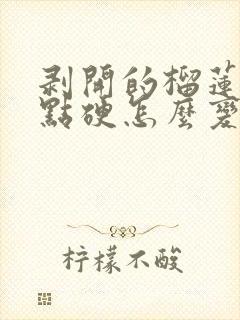 剥開的榴蓮
點硬怎麼變
柠檬不酸